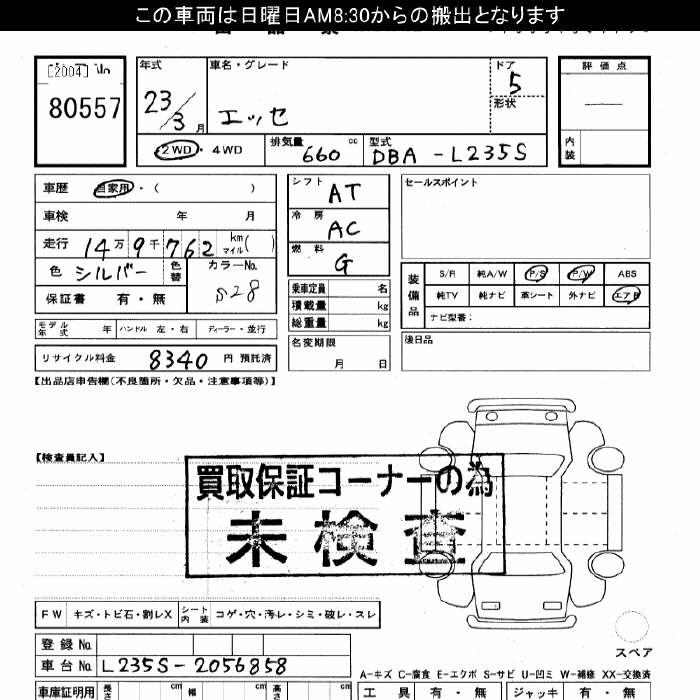 この車両は日曜日AM8:30からの搬出となります
[2004]
80557
年式
23/3 月
車名・グレード
エッセ
ドア
5
形状
評価点
内装
2WD・4WD
排気量 660 cc
型式 DBA-L235S
車歴 自家用・( )
車検 年 月
走行 14万9千762 km マイル( )
色 シルバー 色替
カラーNo. S28
保証書 有・無
シフト AT
冷房 AC
燃料 G
乗車定員 名
積載量 kg
総重量 kg
セールスポイント
装備品
S/R 純A/W P/S P/W ABS
純TV 純ナビ 革シート 外ナビ エアB
ナビ型番:
モデル年式 年 ハンドル 左・右 ディーラー・並行
名変期限
月 日
後日品
リサイクル料金 8340 円 預託済
【出品店申告欄(不良箇所・欠品・注意事項等)】
【検査員記入】
買取保証コーナーの為
未検査
FW キズ・トビ石・割レX シート内装 コゲ・穴・汚レ・シミ・破レ・スレ
スペア
登録No.
車台No. L235S-2056858
A-キズ C-腐食 E-エクボ S-サビ U-凹ミ W-補修 XX-交換済
車庫証明用 長さ cm 幅 cm 高さ cm
工具 有・無 ジャッキ 有・無